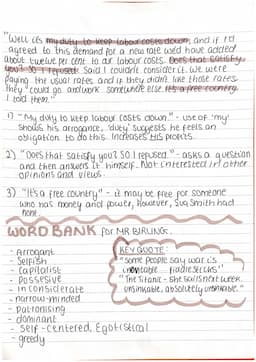 "Well it's my duty to keep labour costs down, and if I'd
agreed to this demand for a new rate we'd have added
about twelve per cent to our labour costs. Does that satisfy
you? So I refused. Said I couldn't consider it. We were
paying the usual rates and if they didn't like those rates,
they could go and work somewhere else. It's a free country,
I told them."
1) "My duty to keep labour costs down." - use of 'my'
shows his arrogance. 'duty' suggests he feels an
obligation to do this. Increases HIS profits.
2) "Does that satisfy you? So I refused." - asks a question
and then answers it himself. Not interested in other
opinions and views.
3) "It's a free country" - it may be free for someone
who has money and power, however, Eva Smith had
none.
WORD BANK for MR BIRLING.
- arrogant
- selfish
- capitalist
- possesive
- inconsiderate
- narrow-minded
- patronising
- dominant
- self-centered, Egotistical
- greedy
KEY QUOTE:
"some people say war is
inevitable fiddlesticks"
"The Titanic - she sails next week
unsinkable, absolutely unsinkable."